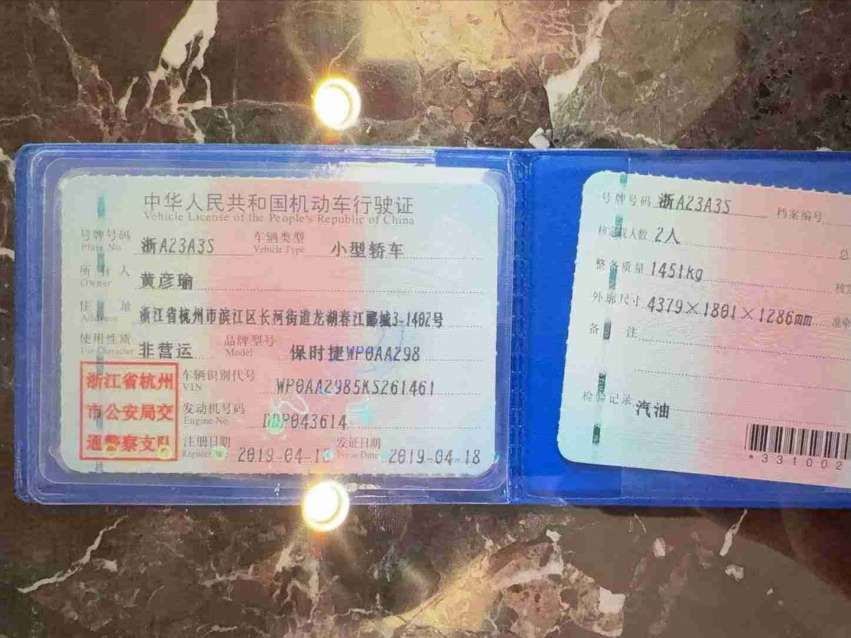 中华人民共和国机动车行驶证
Vehicle License of the People's Republic of China
号牌号码 浙A23A3S 车辆类型 小型轿车
Plate No. Vehicle Type
所有人 黄彦瑜
Owner
住址 浙江省杭州市滨江区长河街道龙湖春江郦城3-1402号
Address
使用性质 非营运 品牌型号 保时捷WP0AA298
Use Character Model
浙江省杭州
市公安局交
通警察支队
车辆识别代号 WP0AA2985KS261461
VIN
发动机号码 DDP043614
Engine No.
注册日期 2019-04-18 发证日期 2019-04-18
Register Date Issue Date
号牌号码 浙A23A3S 档案编号
核定载人数 2人 总
整备质量 1451kg 核定
外廓尺寸 4379×1801×1286mm 准牵
备注
检验记录 汽油
*331002